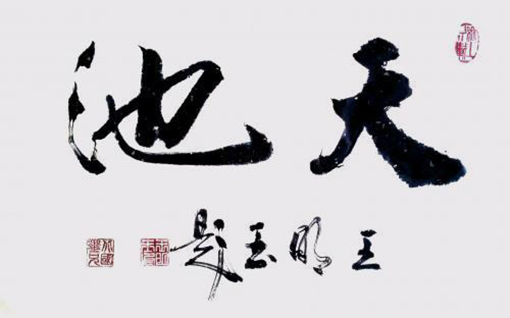 天池
王明玉题